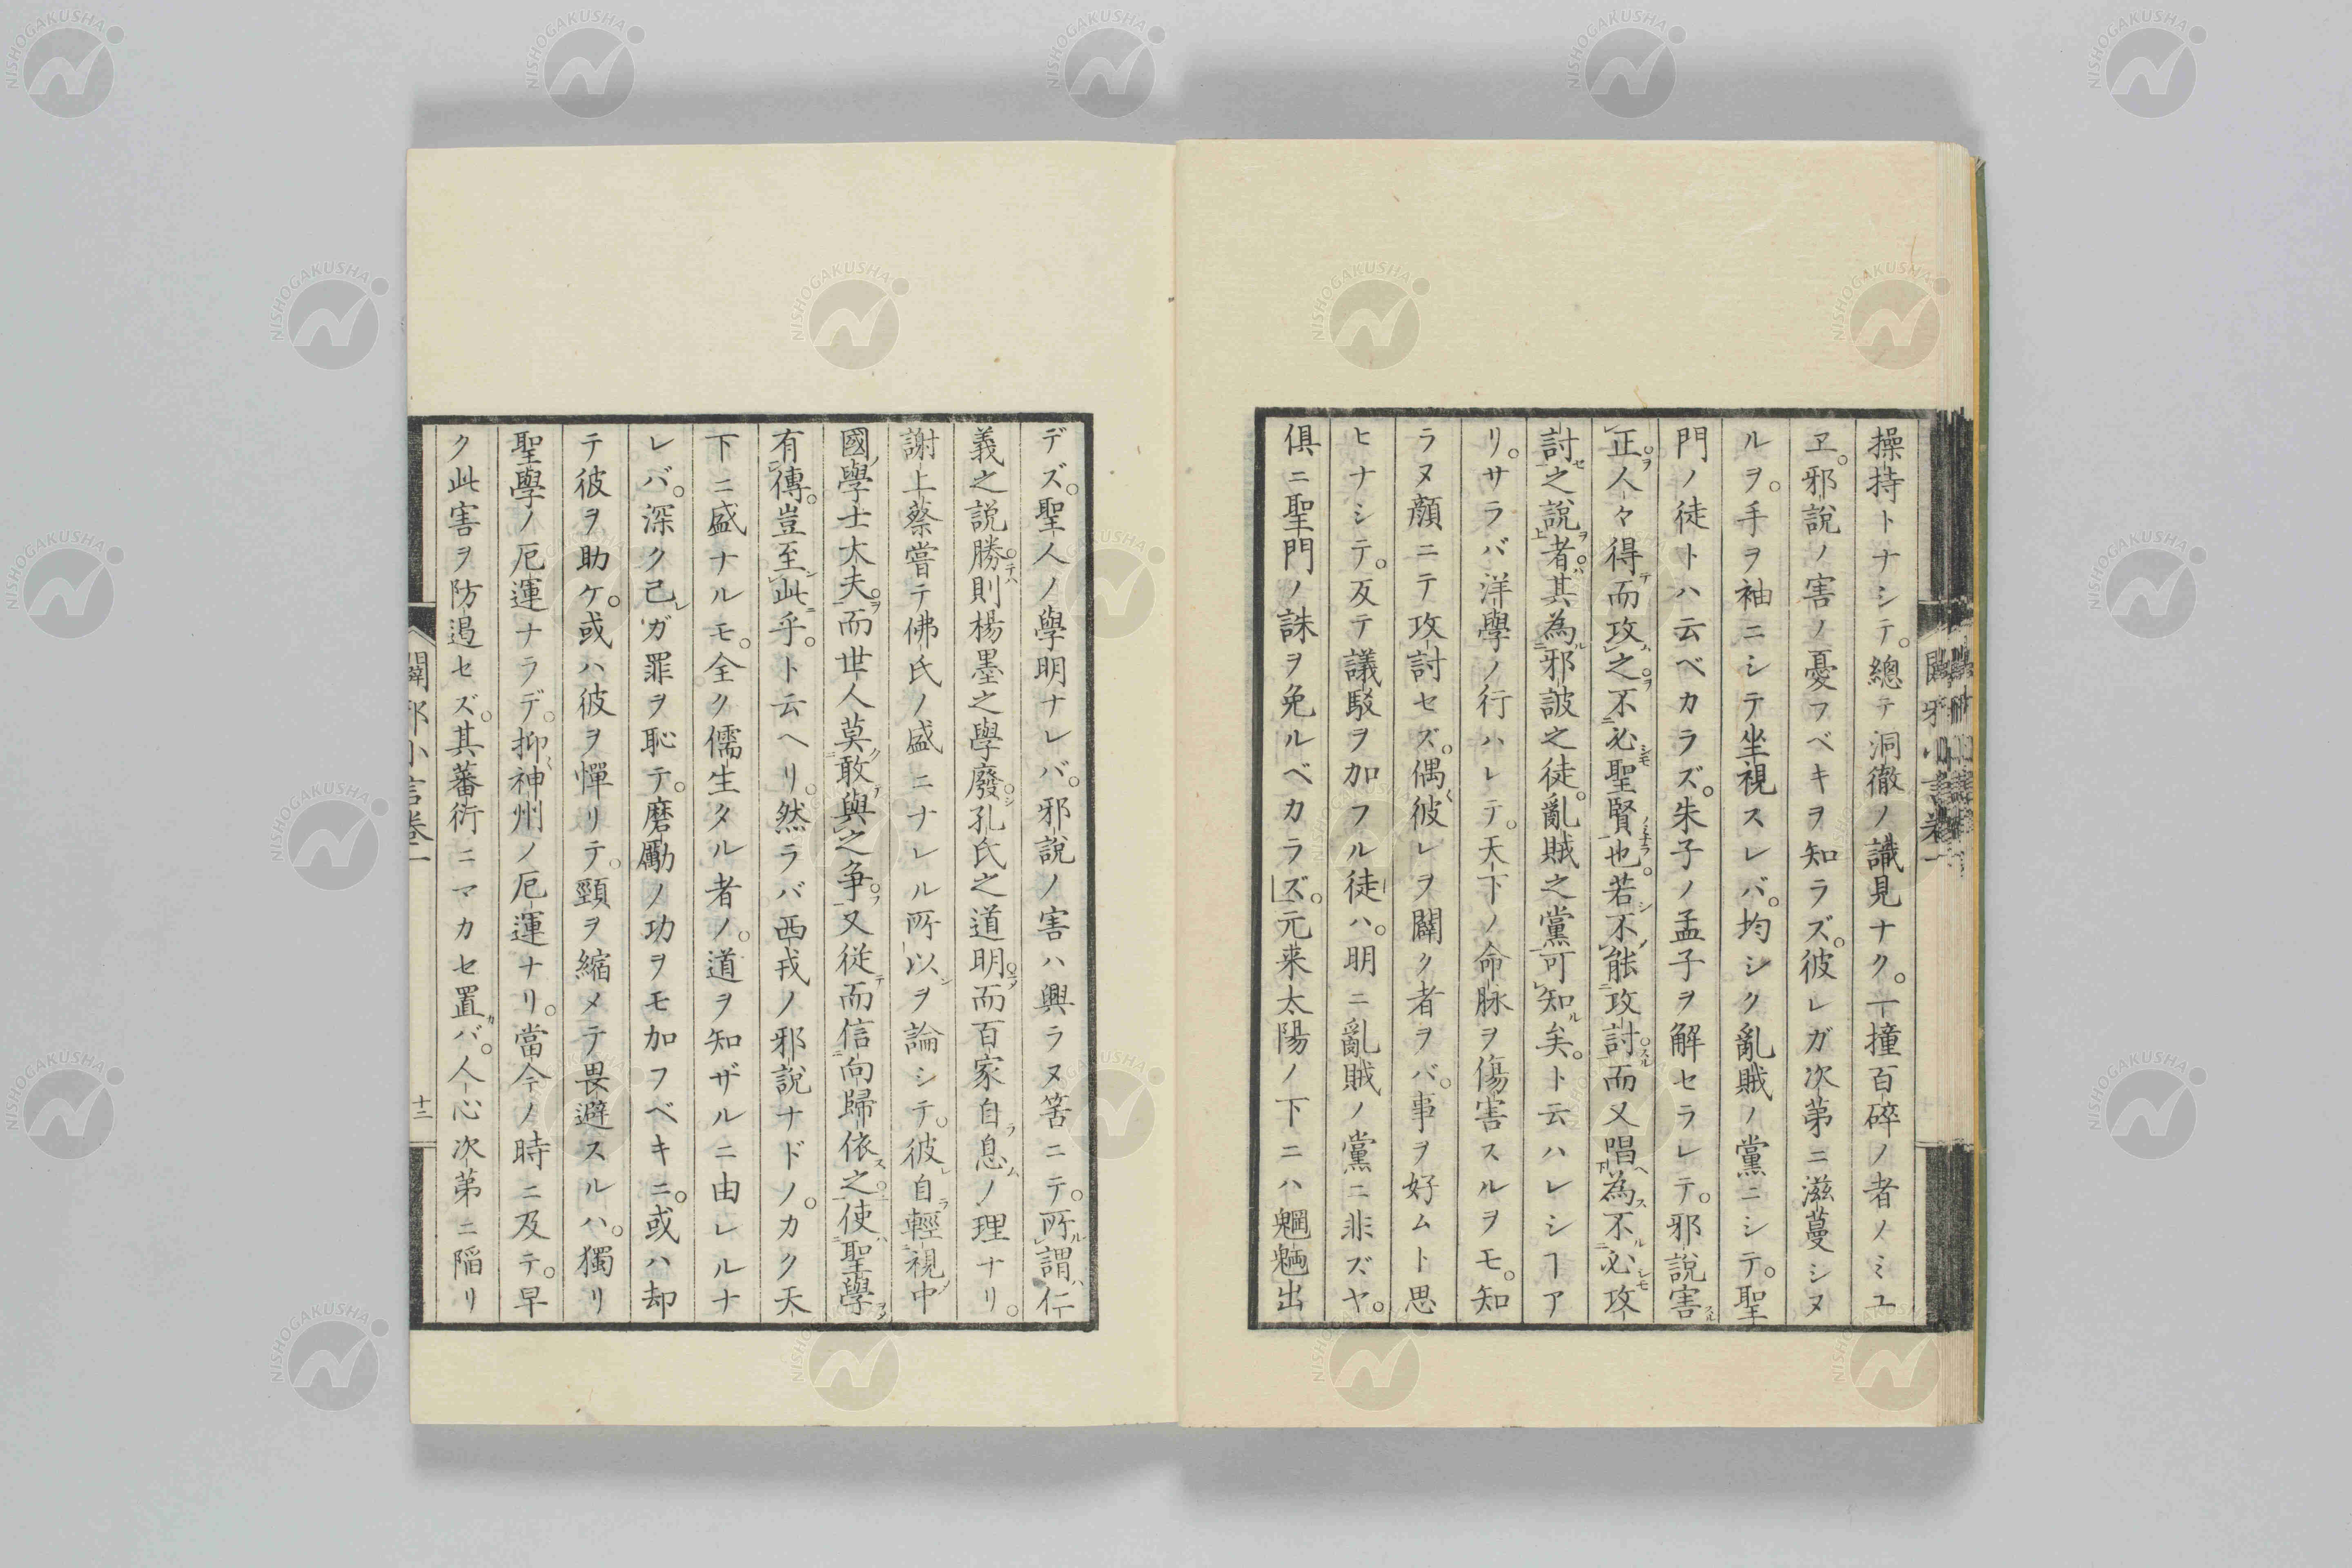 操持トナシテ。總テ洞徹ノ識見ナク。一撞百碎ノ者ノミユ
ヱ。邪說ノ害ノ憂フベキヲ知ラズ。彼レガ次第ニ滋蔓シヌ
ルヲ。手ヲ袖ニシテ坐視スレバ。均シク亂賊ノ黨ニシテ。聖
門ノ徒トハ云ベカラズ。朱子ノ孟子ヲ解セラレテ。邪說害
正。人々得而攻之。不必聖賢也。若不能攻討。而又唱為不必攻
討之說者。其為邪詖之徒。亂賊之黨可知矣。ト云ハレシヿア
リ。サラバ洋學ノ行ハレテ。天下ノ命脉ヲ傷害スルヲモ。知
ラヌ顔ニテ攻討セズ。偶彼レヲ闢ク者ヲバ。事ヲ好ムト思
ヒナシテ。反テ議駁ヲ加フル徒ハ。明ニ亂賊ノ黨ニ非ズヤ。
俱ニ聖門ノ誅ヲ免ルベカラズ。元来太陽ノ下ニハ魍魎出
デズ。聖人ノ學明ナレバ。邪說ノ害ハ興ラヌ筈ニテ。所謂仁
義之說勝則楊墨之學廢。孔氏之道明。而百家自息ノ理ナリ。
謝上蔡嘗テ佛氏ノ盛ニナレル所以ヲ論シテ。彼自輕視中
國學士大夫。而世人莫敢與之爭。又從而信向歸依之。使聖學
有傳。豈至此乎。ト云ヘリ。然ラバ西戎ノ邪說ナドノ。カク天
下ニ盛ナルモ。全ク儒生タル者ノ。道ヲ知ザルニ由レルナ
レバ。深ク己ガ罪ヲ恥テ。磨勵ノ功ヲモ加フベキニ。或ハ却
テ彼ヲ助ケ。或ハ彼ヲ憚リテ。頸ヲ縮メテ畏避スルハ。獨リ
聖學ノ厄運ナラデ。抑神州ノ厄運ナリ。當今ノ時ニ及テ。早
ク此害ヲ防遏セズ。其蕃衍ニマカセ置バ。人心次第ニ陷リ
闢邪小言卷一
十二